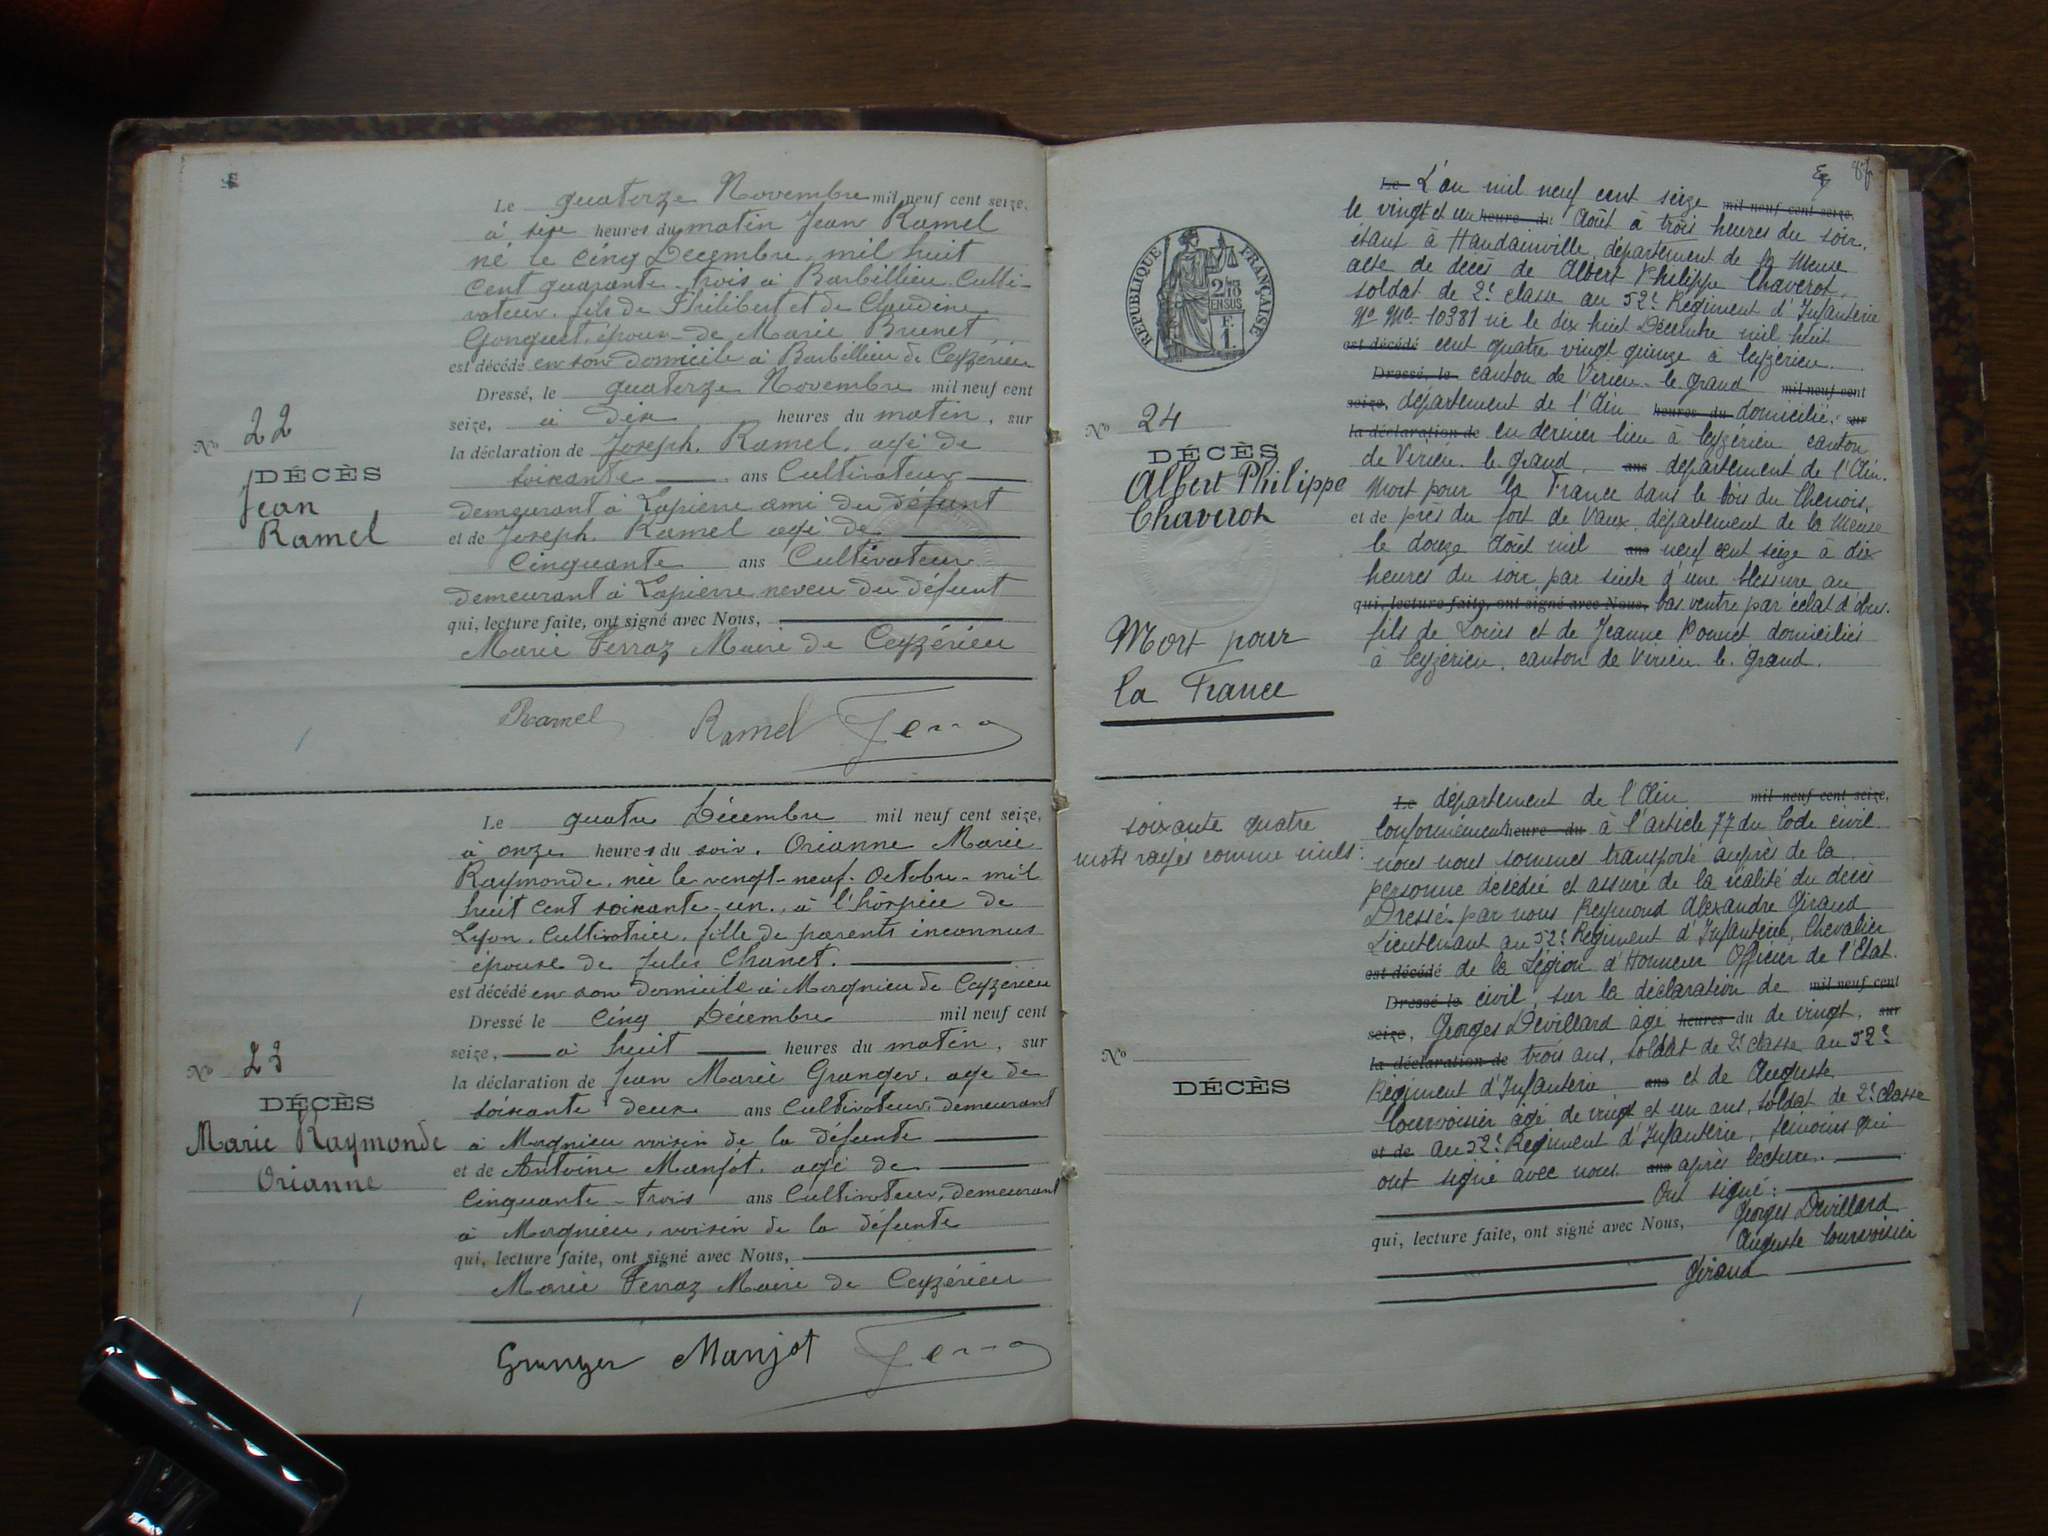 Le quatorze Novembre mil neuf cent seize,
à six heures du matin Jean Ramel
né le cinq Décembre mil huit
cent quarante trois à Barbillieu Culti-
vateur, fils de Philibert et de Claudine
Gonguet, époux de Marie Brunet
est décédé en son domicile à Barbillieu de Ceyzérieu
Dressé, le quatorze Novembre mil neuf cent
seize, à dix heures du matin, sur
la déclaration de Joseph Ramel, agé de
soixante ans Cultivateur
demeurant à Lapierre ami du défunt
et de Joseph Ramel agé de
Cinquante ans Cultivateur
demeurant à Lapierre neveu du défunt
qui, lecture faite, ont signé avec Nous,
Marie Ferraz Maire de Ceyzérieu
No 22
DÉCÈS
Jean
Ramel
Ramel Ramel
Le quatre Décembre mil neuf cent seize,
à onze heures du soir, Orianne Marie
Raymonde, née le vingt-neuf Octobre mil
huit cent soixante-un, à l'hospice de
Lyon, Cultivatrice, fille de parents inconnus
épouse de Jules Chanet.
est décédé en son domicile à Morgnieu de Ceyzérieu
Dressé le cinq Décembre mil neuf cent
seize, à huit heures du matin, sur
la déclaration de Jean Marie Granger, agé de
soixante deux ans Cultivateur, demeurant
à Morgnieu voisin de la défunte
et de Antoine Manjot, agé de
Cinquante-trois ans Cultivateur, demeurant
à Morgnieu, voisin de la défunte
qui, lecture faite, ont signé avec Nous,
Marie Ferraz Maire de Ceyzérieu
No 23
DÉCÈS
Marie Raymonde
Orianne
Granger Manjot
Le L'an mil neuf cent seize mil neuf cent seize,
le vingt et un heure du Août à trois heures du soir,
étant à Haudainville, département de la Meuse
acte de décès de Albert Philippe Chaverot,
soldat de 2e classe au 52e Régiment d'Infanterie
No Mle 10381 né le dix huit Décembre mil huit
est décédé cent quatre vingt quinze à Ceyzérieu
Dressé, le canton de Virieu le grand mil neuf cent
seize, département de l'Ain heures du domicilié, sur
la déclaration de en dernier lieu à Ceyzérieu canton
de Virieu le grand, ans département de l'Ain.
Mort pour la France dans le bois du Chenois,
et de près du fort de Vaux, département de la Meuse
le douze Août mil ans neuf cent seize à dix
heures du soir, par suite d'une blessure au
qui, lecture faite, ont signé avec Nous, bas ventre par éclat d'obus.
fils de Louis et de Jeanne domiciliés
à Ceyzérieu, canton de Virieu le grand.
REPUBLIQUE FRANÇAISE
2/10
EN SUS
F.
1
No 24
DÉCÈS
Albert Philippe
Chaverot
Mort pour
la France
Le département de l'Ain mil neuf cent seize,
Conformément heure du à l'article 77 du Code civil
nous nous sommes transporté auprès de la
personne décédée et assuré de la réalité du décès
Dressé par nous Reymond Alexandre Giraud
Lieutenant au 52e Régiment d'Infanterie, Chevalier
est décédé de la Légion d'Honneur Officier de l'Etat
Dressé le civil, sur la déclaration de mil neuf cent
seize, Georges Devillard agé heures du de vingt, sur
la déclaration de trois ans, soldat de 2e classe au 52e
Régiment d'Infanterie ans et de Auguste
Courvoisier âgé de vingt et un ans, soldat de 2e classe
et de au 52e Régiment d'Infanterie, témoins qui
ont signé avec nous ans après lecture.
Ont signé :
Georges Devillard
qui, lecture faite, ont signé avec Nous,
Auguste Courvoisier
Giraud
soixante quatre
mots rayés comme nuls :
No
DÉCÈS